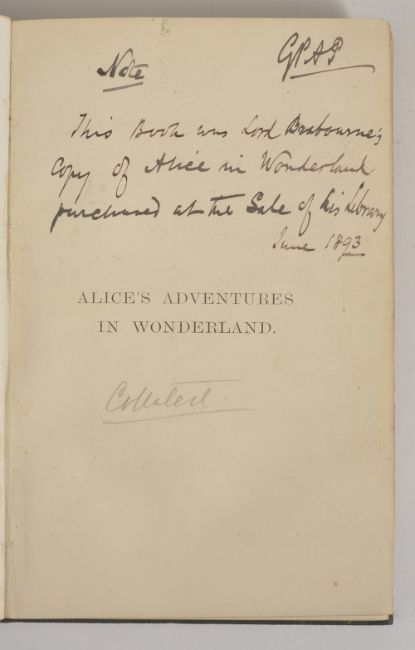 GPAP
Note
This Book was Lord Brabourne's
Copy of Alice in Wonderland
purchased at the Sale of his Library
June 1893
ALICE'S ADVENTURES
IN WONDERLAND.
Collated.